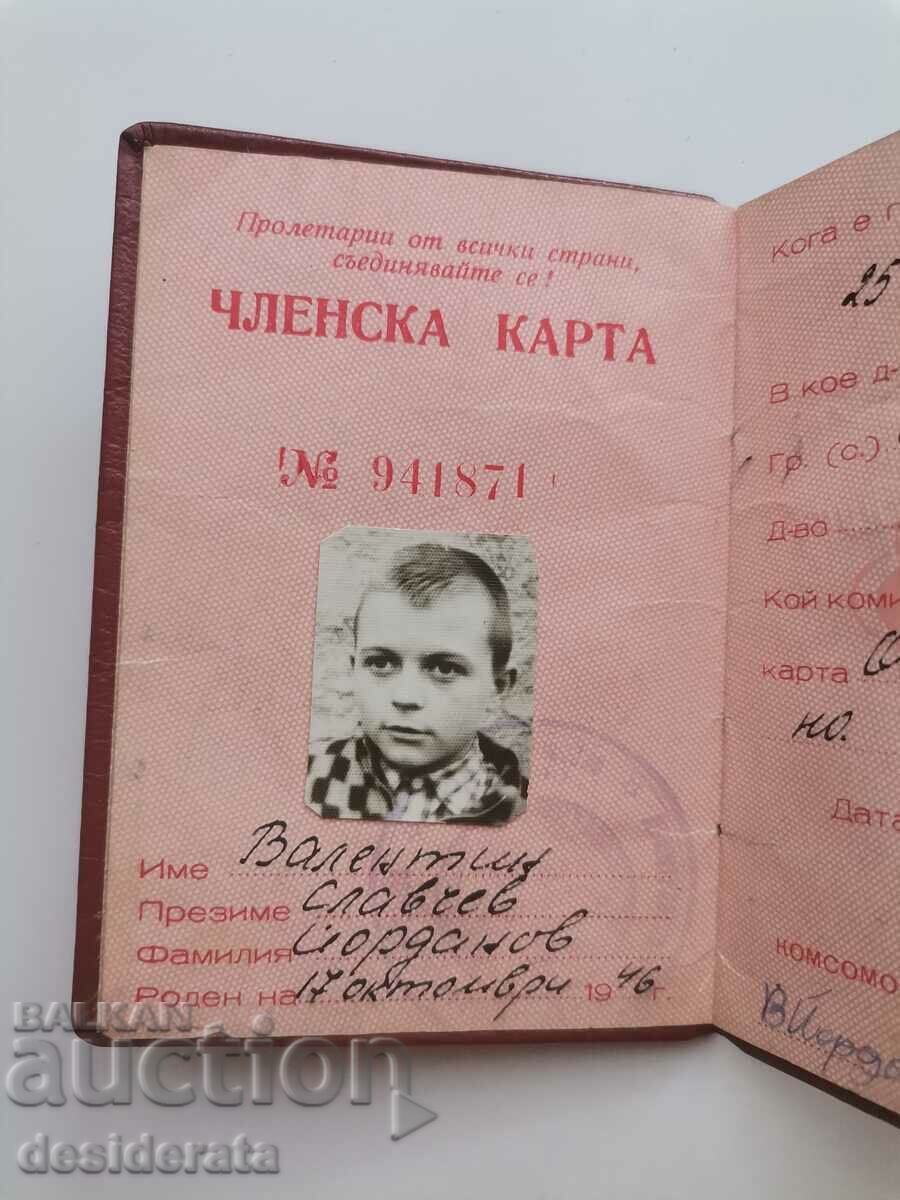 Пролетарии от всички страни,
съединявайте се!
ЧЛЕНСКА КАРТА
№ 941871
Име Валентин
Презиме Славчев
Фамилия Йорданов
Роден на 17 октомври 1946 г.
Кога е п
25
В кое д-
Гр. (с.)
Д-во
Кой коми
карта
но.
Дата
комсомо
В Йорда
BALKAN
auction
desiderata